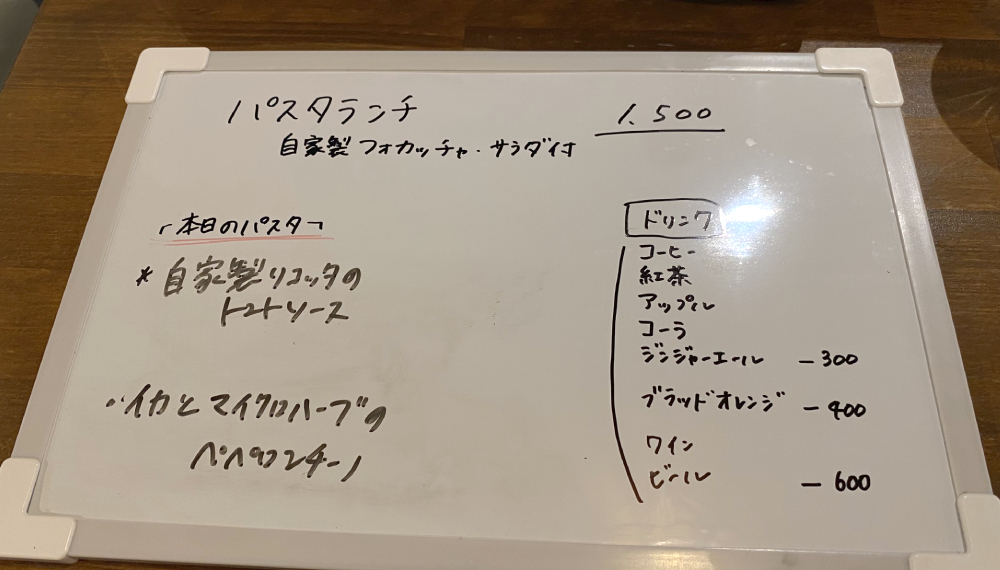 パスタランチ 1,500
自家製フォカッチャ・サラダ付
「本日のパスタ」
* 自家製リコッタの
トマトソース
・イカとマイクロハーブの
ペペロンチーノ
ドリンク
コーヒー
紅茶
アップル
コーラ
ジンジャーエール - 300
ブラッドオレンジ - 400
ワイン
ビール - 600